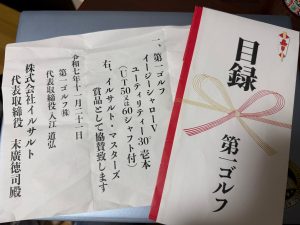 目録
第一ゴルフ
一、第一ゴルフ
イージーシャローV
ユーティリティー30°壱本
(UT50又は60シャフト付)
右、イルサルト・マスターズ
賞品として協賛致します
令和七年十一月二十二日
第一ゴルフ㈱
代表取締役 入江 道弘
株式会社イルサルト
代表取締役 末廣徳司殿